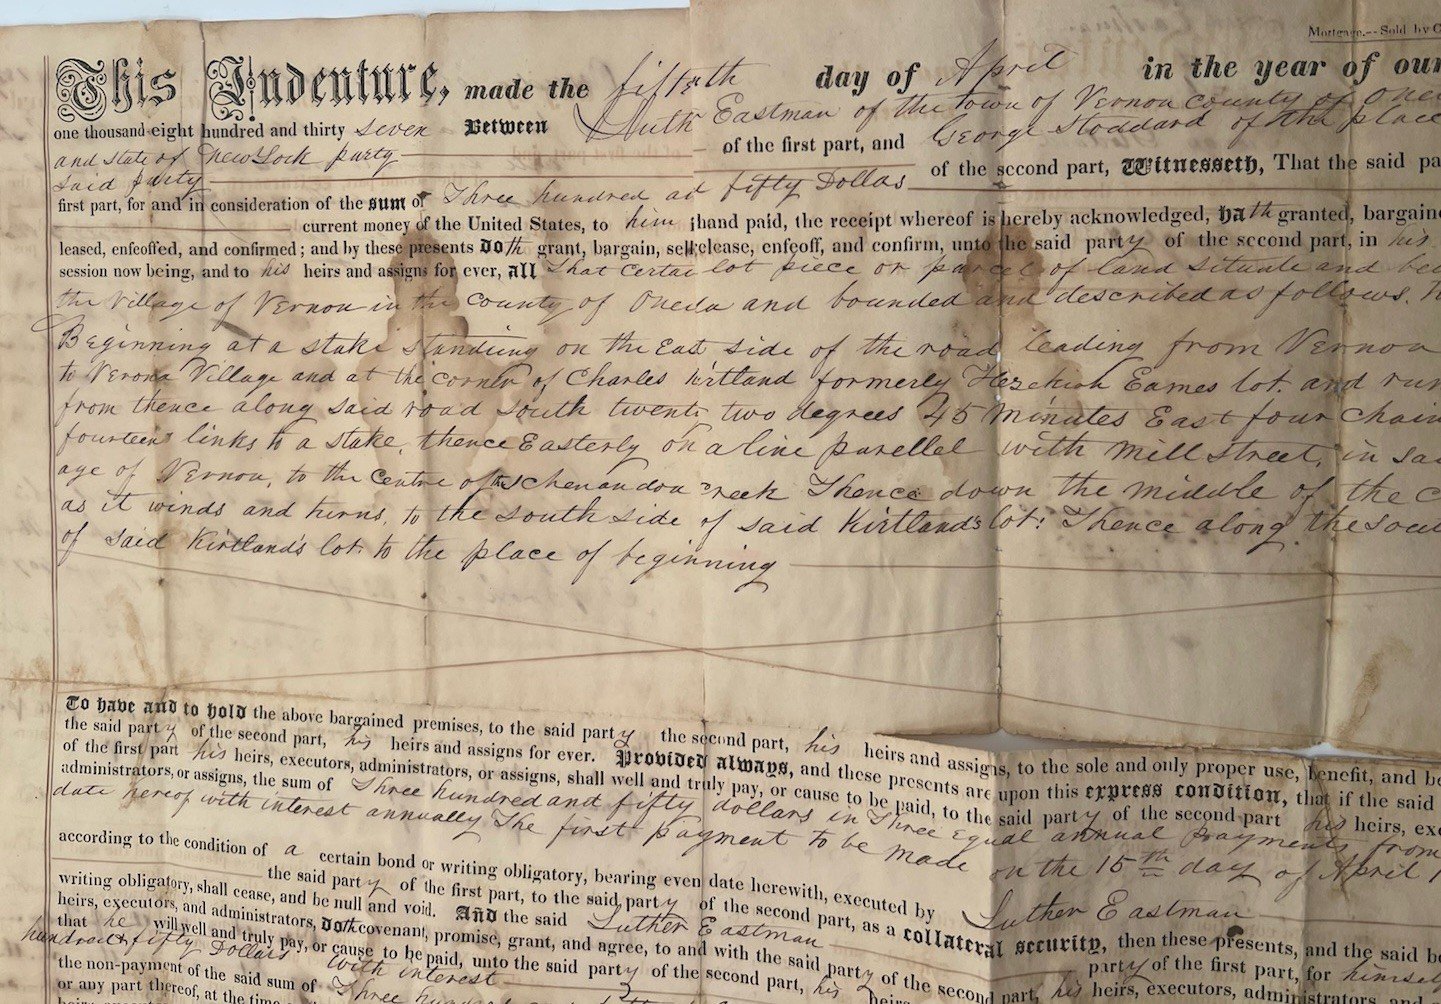 Mortgage.--Sold by
This Indenture, made the fifteth day of April in the year of our
one thousand eight hundred and thirty seven Between Luth Eastman of the town of Vernon county of
and state of New York party of the first part, and George Stoddard of the place
said party of the second part, Witnesseth, That the said
first part, for and in consideration of the sum of Three hundred ad fifty Dollas
current money of the United States, to him hand paid, the receipt whereof is hereby acknowledged, hath granted,
leased, enfeoffed, and confirmed; and by these presents Doth grant, bargain, sell release, enfeoff, and confirm, unto the said party of the second part, in his
session now being, and to his heirs and assigns for ever, all That certai lot piece or parcel of land situate and
the village of Vernon in the county of Oneida and bounded and described as follows.
Beginning at a stake standing on the East side of the road leading from Vernon
to Verona Village and at the corner of Charles Kirtland formerly Hezekiah Eames lot. and
from thence along said road South twenty two degrees 45 minutes East four
fourteen links to a stake, thence Easterly on a line parellel with Mill Street, in
age of Vernon, to the Centre of the Schenandoa Creek Thence down the middle of the
as it winds and turns, to the South side of said Kirtland's lot: Thence along the
of said Kirtland's lot to the place of beginning
To have and to hold the above bargained premises, to the said party the second part, his heirs and assigns, to the sole and only proper use, benefit, and
the said party of the second part, his heirs and assigns for ever. Provided always, and these presents are upon this express condition, that if the said
of the first part his heirs, executors, administrators, or assigns, shall well and truly pay, or cause to be paid, to the said party of the second part his heirs,
administrators, or assigns, the sum of Three hundred and fifty dollars in Three Equal annual payments from
date hereof with interest annually The first payment to be made on the 15th day of April
according to the condition of a certain bond or writing obligatory, bearing even date herewith, executed by Luther Eastman
the said party of the first part, to the said party of the second part, as a collateral security, then these presents, and the said
writing obligatory, shall cease, and be null and void. And the said Luther Eastman party of the first part, for
heirs, executors, and administrators, doth covenant, promise, grant, and agree, to and with the said party of the second part, his heirs, executors, administrators and
that he will well and truly pay, or cause to be paid, unto the said party of the second part, his heirs
hundred & fifty Dollars with interest
the non-payment of the said sum of Three
or any part thereof, at the time